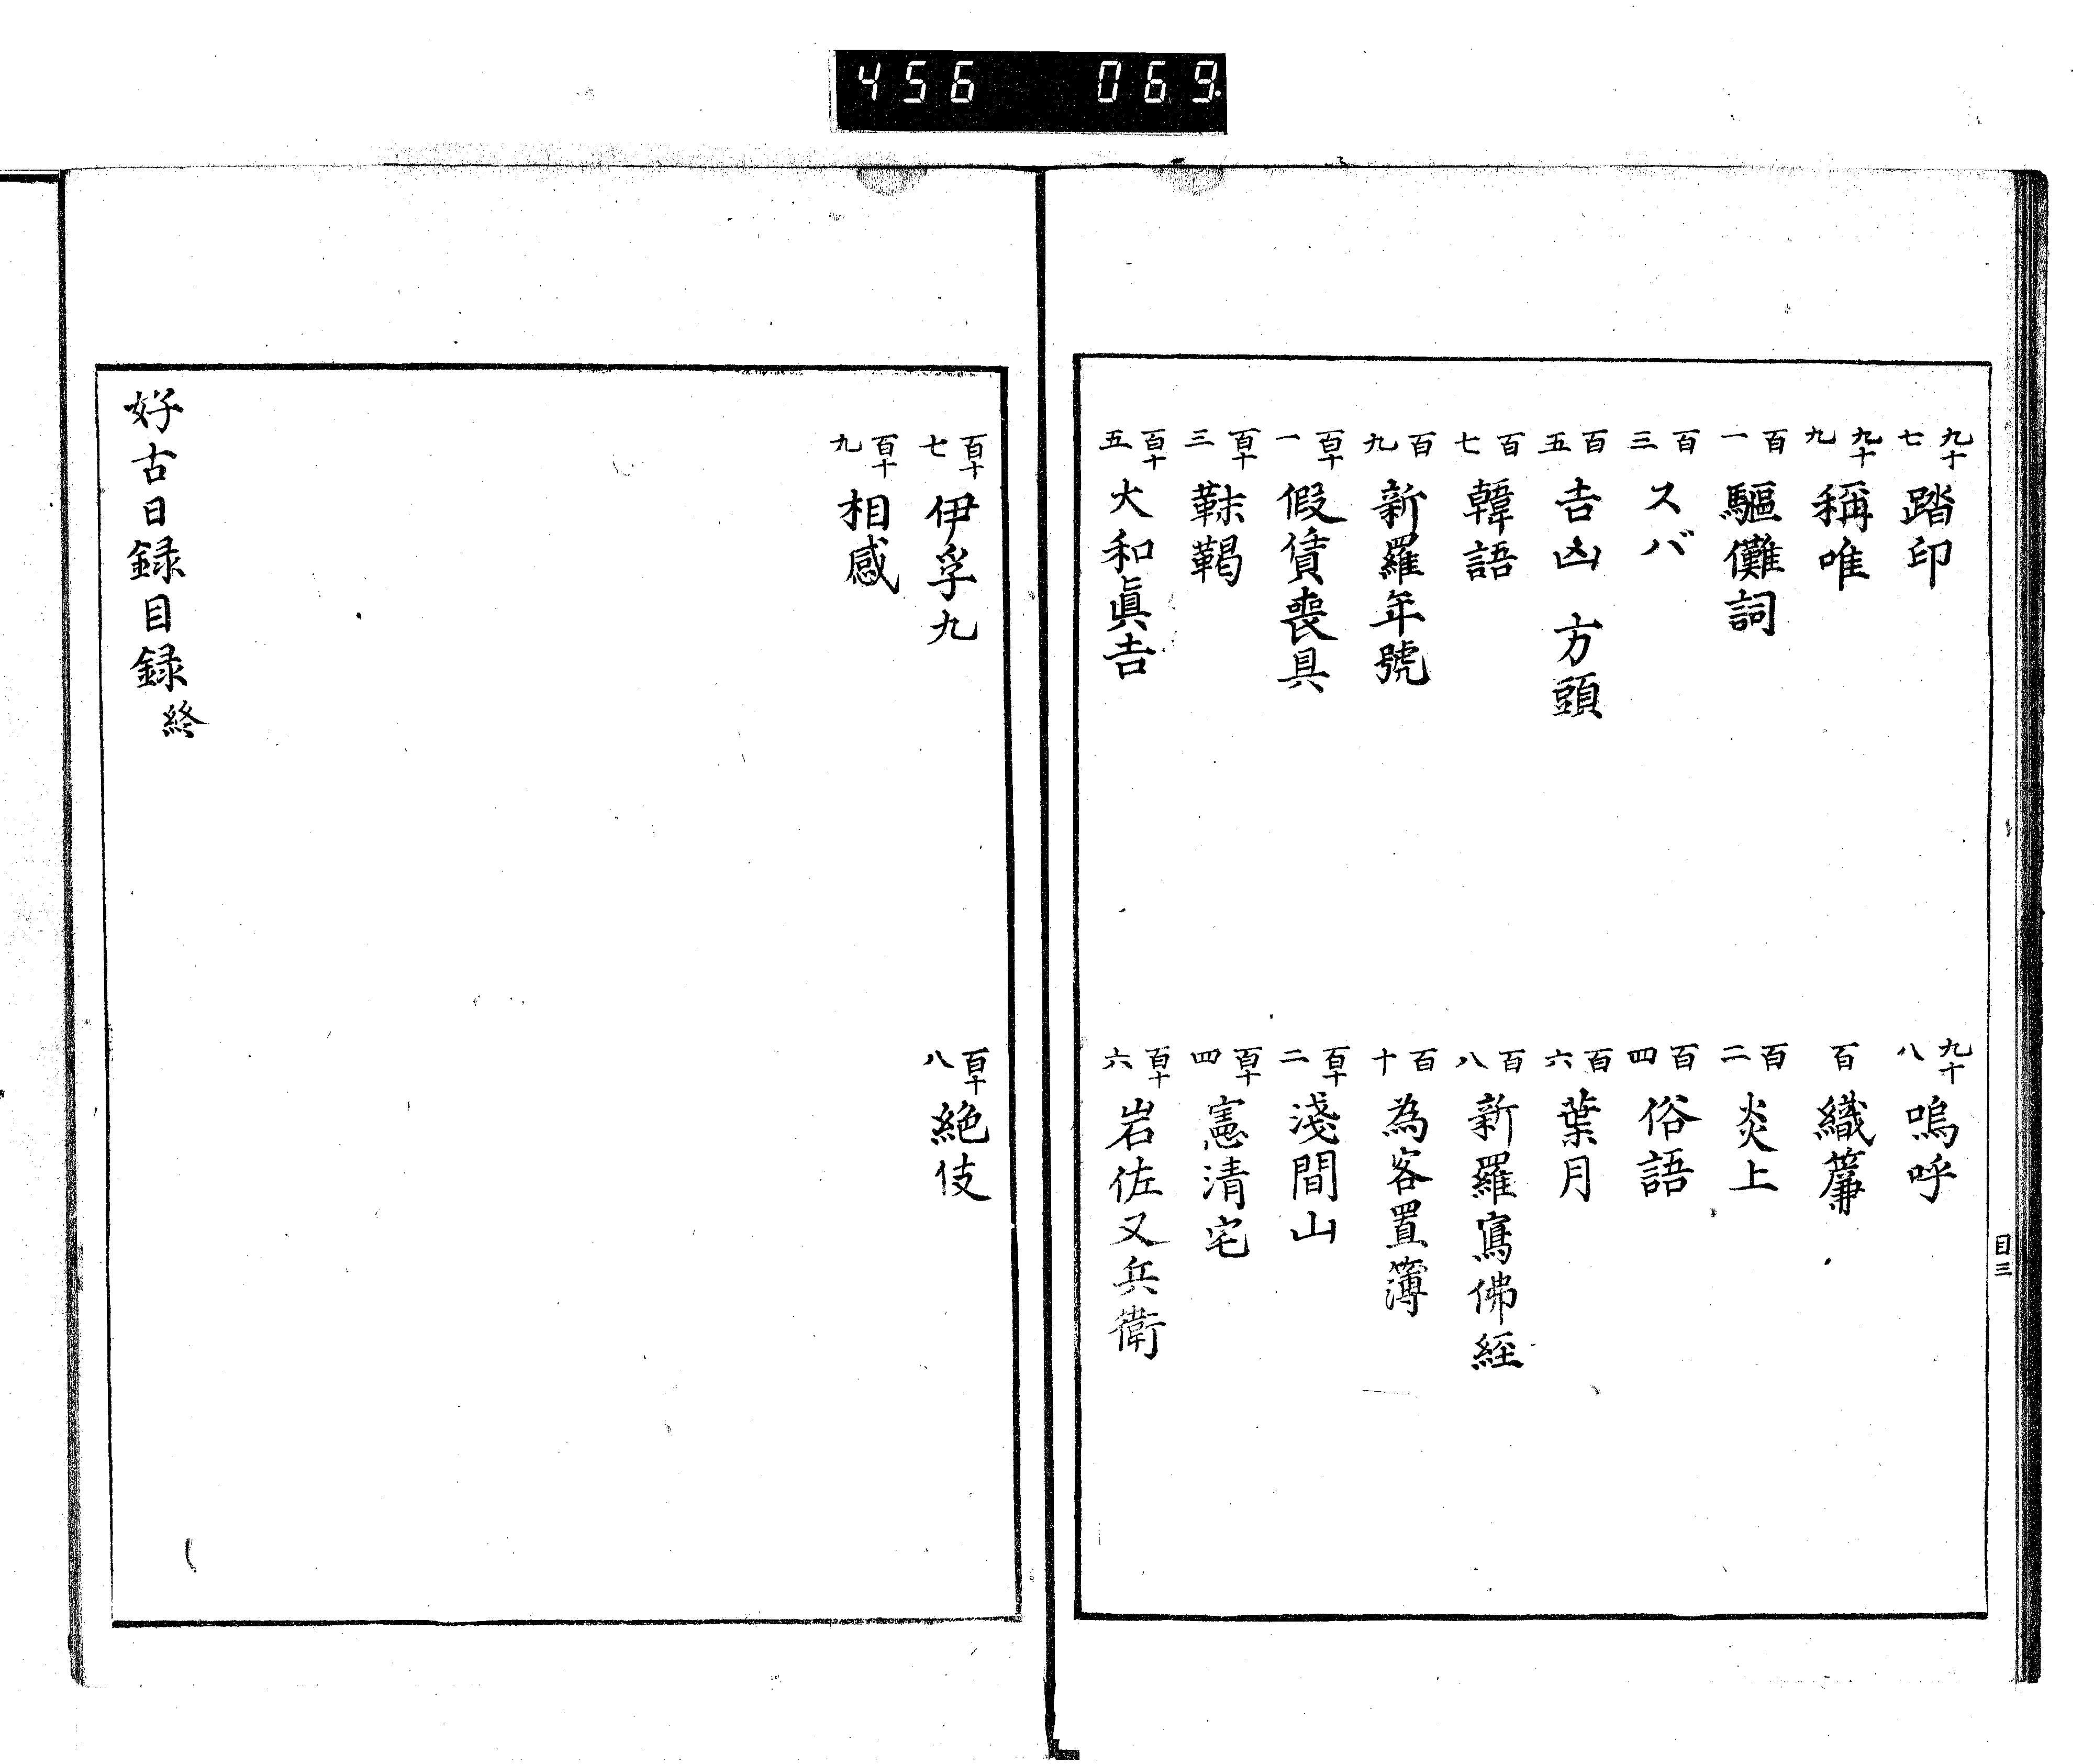 456 069
九十七 踏印
九十八 嗚呼
九十九 稱唯
百 織簾
百一 驅儺詞
百二 炎上
百三 スバ
百四 俗語
百五 吉凶 方頭
百六 葉月
百七 韓語
百八 新羅寫佛經
百九 新羅年號
百十 為客置簿
百十一 假賃喪具
百十二 淺間山
百十三 靺鞨
百十四 憲清宅
百十五 大和眞吉
百十六 岩佐又兵衛
目三
百十七 伊孚九
百十八 絶伎
百十九 相感
好古日録目録 終